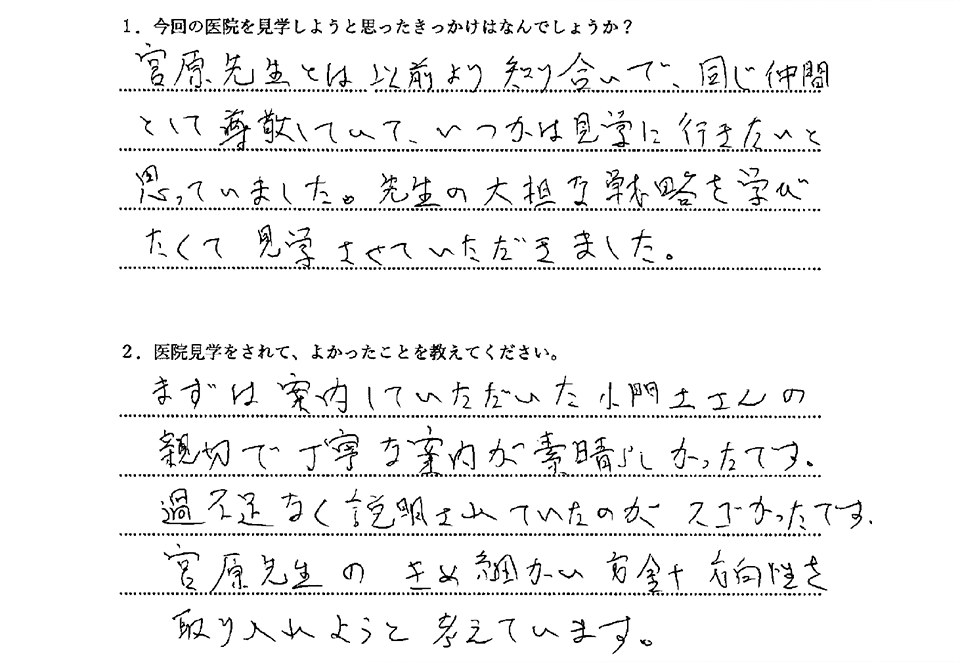 1. 今回の医院を見学しようと思ったきっかけはなんでしょうか？
宮原先生とは以前より知り合いで、同じ仲間
として尊敬していて、いつかは見学に行きたいと
思っていました。先生の大胆な戦略を学び
たくて見学させていただきました。
2. 医院見学をされて、よかったことを教えてください。
まずは案内していただいた小門士さんの
親切で丁寧な案内が素晴らしかったです。
過不足なく説明されていたのがスゴかったです.
宮原先生のきめ細かい 方向性を
取り入れようと考えています。